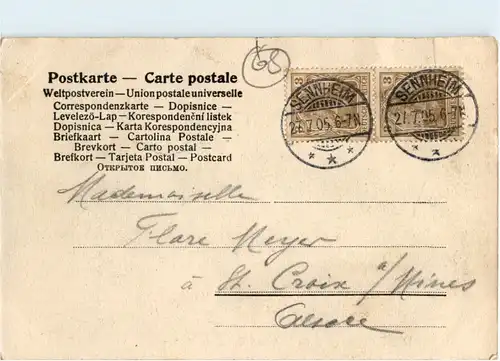 68
Postkarte — Carte postale
Weltpostverein — Union postale universelle
Correspondenzkarte — Dopisnice —
Levelező-Lap — Korespondenční listek
Dopisnica — Karta Korespondencyjna
Briefkaart — Cartolina Postale —
Brevkort — Carto postal —
Brefkort — Tarjeta Postal — Postcard
Открытое письмо.
3 3
SENNHEIM
21.7.05. 6-7N.
SENNHEIM
21.7.05. 6-7N.
Mademoiselle
Flore Meyer
à St. Croix a/Mines
Elsace